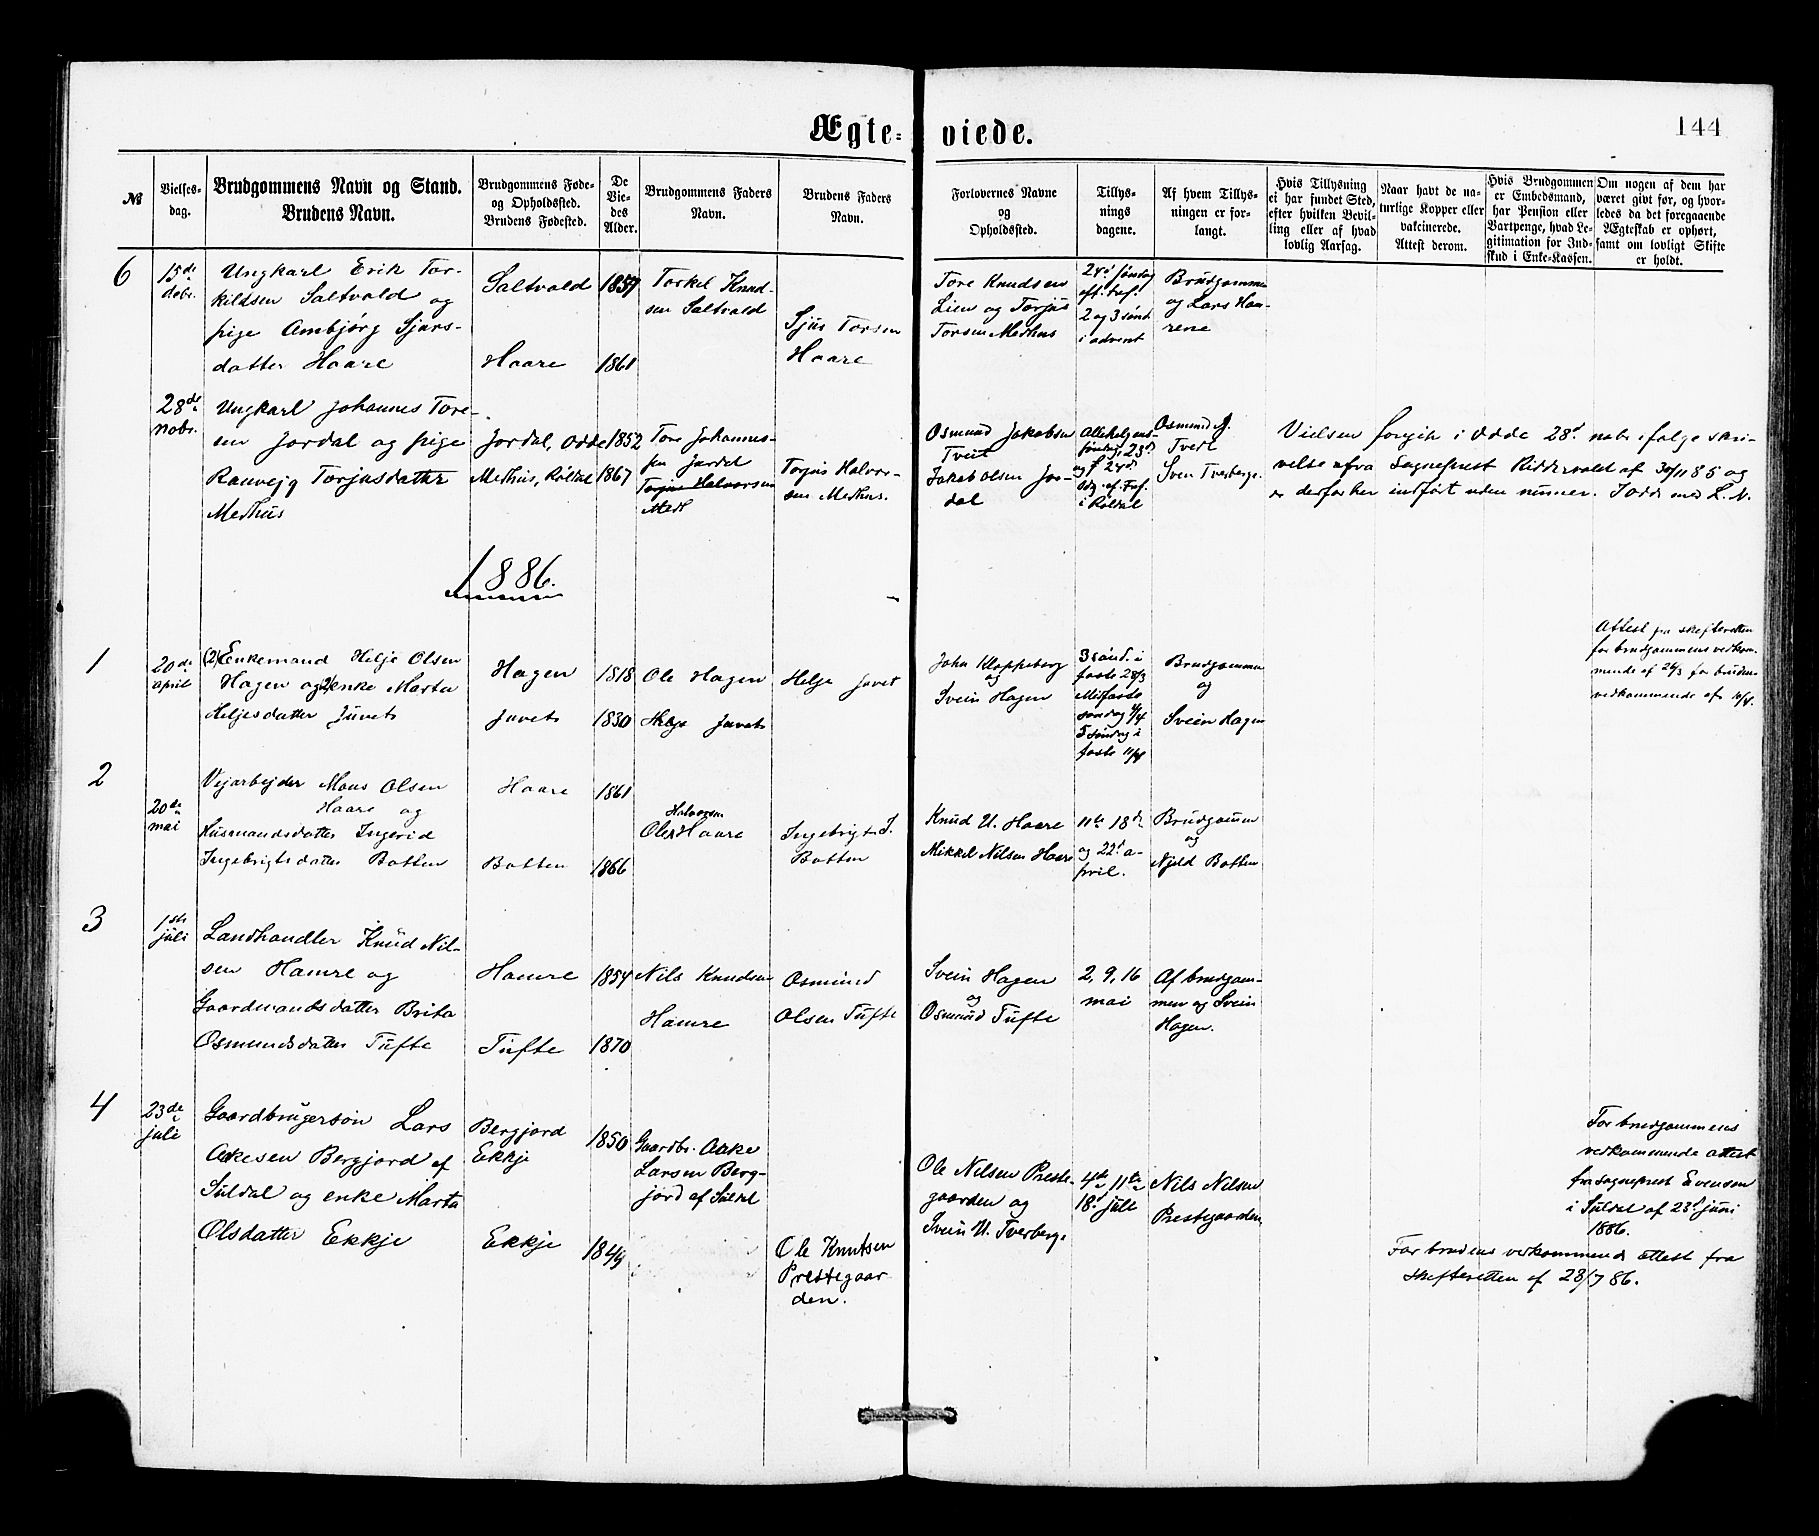 Ægte- viede.
144
№
Vielses-
dag.
Brudgommens Navn og Stand.
Brudens Navn.
Brudgommens Føde-
og Opholdssted.
Brudens Fødested.
De
Vie-
des
Alder.
Brudgommens Faders
Navn.
Brudens Faders
Navn.
Forlovernes Navne
og
Opholdssted.
Tillys-
nings
dagene.
Af hvem Tillys-
ningen er for-
langt.
Hvis Tillysning
ei har fundet Sted,
efter hvilken Bevil-
ling eller af hvad
lovlig Aarsag.
Naar havt de na-
turlige Kopper eller
vakcinerede.
Attest derom.
Hvis Brudgommen
er Embedsmand,
har Pension eller
Vartpenge, hvad Le-
gitimation for Ind-
skud i Enke-Kassen.
Om nogen af dem har
været givt før, og hvor-
ledes da det foregaaende
Ægteskab er ophørt,
samt om lovligt Skifte
er holdt.
6
15de
debr.
Ungkarl Erik Tor-
kildsen Saltvold og
pige Ambjørg Sjurs-
datter Haare
Saltvold
Haare
1857
1861
Torkel Knud-
sen Saltvold
Sjus Torsen
Haare
Tore Knudsen
Lien og Torjus
Torsen Medhus
24d søndag
eft. tref.
2 og 3 sønd
i advent
Brudgommen
og Lars Ham-
rene
28de
nobr.
Ungkarl Johannes Tore-
sen Jordal og pige
Ranveig Torjusdatter
Medhus
Jordal, Odde
Medhus, Røldal
1852
1867
Tore Johannes-
sen Jordal
Torjus Halvorsen
Med
Torjus Halvor-
sen Medhus.
Osmund Jakobsen
Tveit
Jakob Olsen Jor-
dal
Allehelgens-
søndag, 23d
og 24d
Sdg. ef. Tref.
i Røldal
Osmund J.
Tvedt
Sven Tverberge.
Vielsen foregik i Odde 28d nobr ifølge skri-
velse ifra Sogneprest Riddervold af 30/11 85 og
er derfor her indført uden numer. I Odde med L. N.
1886.
1
20de
april
(2) Enkemand Helje Olsen
Hagen og 2) enke Marta
Heljesdatter Juvets
Hagen
Juvets
1818
1830
Ole Hagen
Helge Juvets
Helje Juvet
John Kloppeborg
og
Svein Hagen
3 sønd. i
faste 28/3
Midfaste
søndag 4/4
5 søndag i
faste 11/4
Brudgommen
og
Svein Hagen
Attest fra skifteretten
for brudgommens vedkom-
mende af 26/3 for brudens
vedkommende af 10/4.
2
20de
mai
Vejarbejder Mons Olsen
Haare og
Husmandsdatter Ingerid
Ingebrigtsdatter Botten
Haare
Botten
1861
1866
Halvorsen
Ole Haare
Ingebrigt J.
Botten
Knud U. Haare
Mikkel Nilsen Haare
11te 18de
og 22d a-
pril.
Brudgommen
og
Njeld Botten
3
1ste
juli
Landhandler Knud Nil-
sen Hamre og
Gaardmandsdatter Brita
Osmundsdatter Tufte
Hamre
Tufte
1854
1870
Nils Knudsen
Hamre
Osmund
Olsen Tufte
Svein Hagen
og
Osmund Tufte
2, 9, 16
mai
Af brudgom-
men og Svein
Hagen.
4
23de
juli
Gaardbrugersøn Lars
Akesen Bergjord af
Suldal og enke Marta
Olsdatter Ekkje
Bergjord
Ekkje
Ekkje
1850
1849
Gaardbr. Aake
Larsen Berg-
jord af Suldal
Ole Knutsen
Prestegaar-
den.
Ole Nilsen Preste-
gaarden og
Svein U. Tverberge
4de 11te
18d juli
Nils Nilsen
Prestegaarden
For brudgommens
vedkommende attest
fra Sogneprest Evensen
i Suldal af 23d juni
1886.
For brudens vedkommende attest fra
skifteretten af 23/7 86.